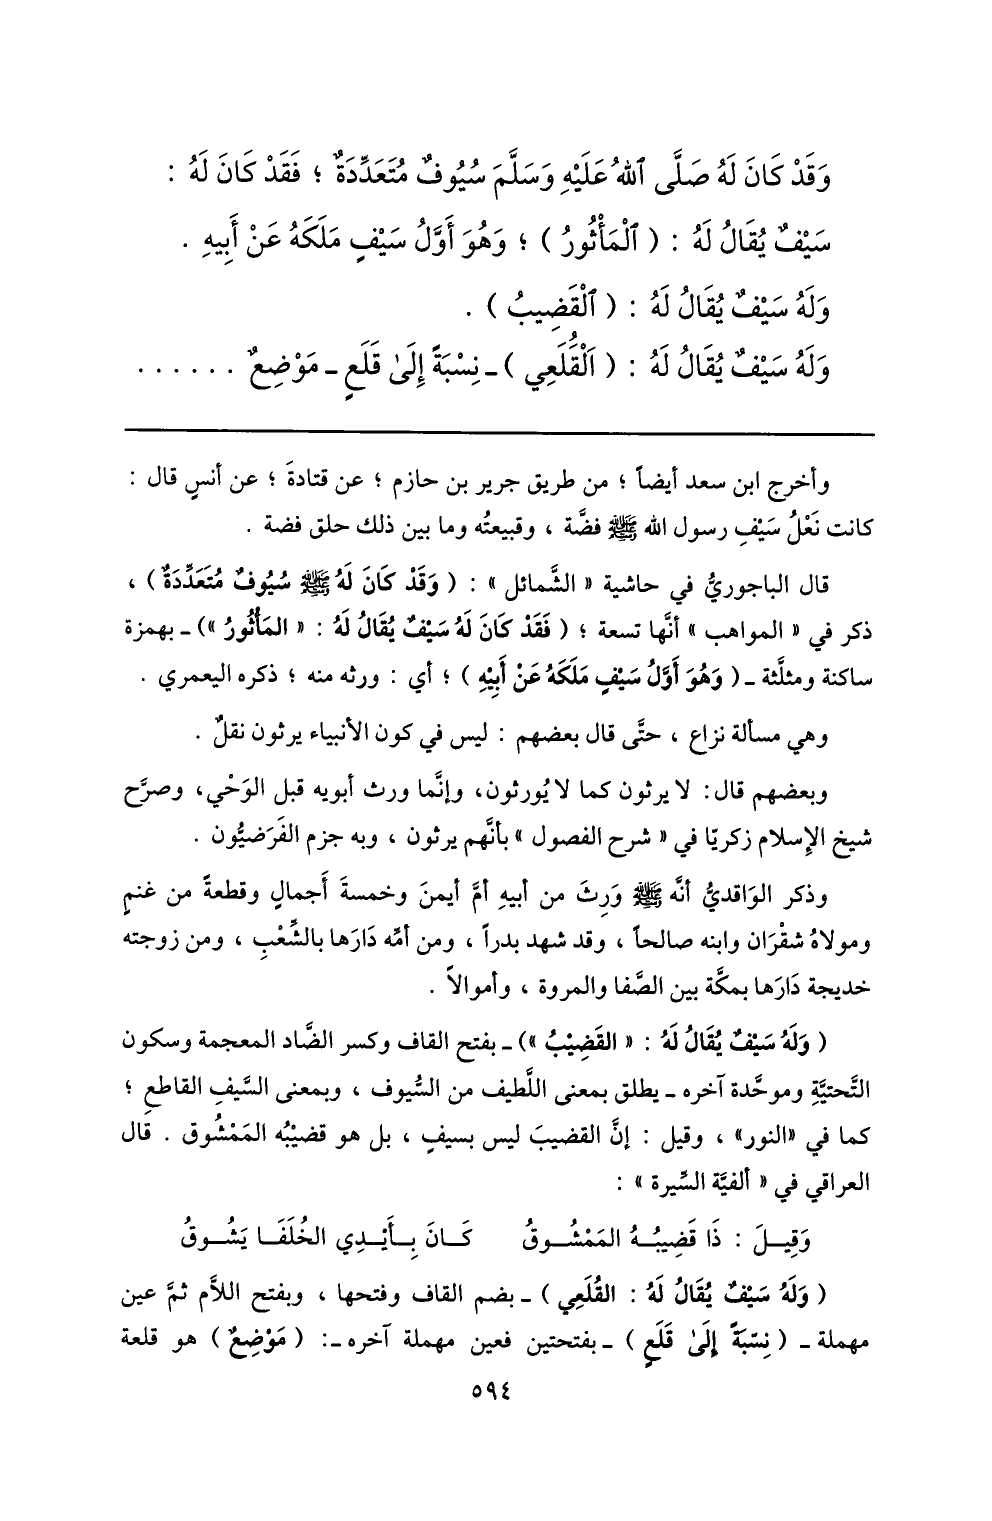 وَقَدْ كَانَ لَهُ صَلَّى ٱللهُ عَلَيْهِ وَسَلَّمَ سُيُوفٌ مُتَعَدِّدَةٌ ؛ فَقَدْ كَانَ لَهُ :
سَيْفٌ يُقَالُ لَهُ : ( ٱلْمَأْثُورُ ) ؛ وَهُوَ أَوَّلُ سَيْفٍ مَلَكَهُ عَنْ أَبِيهِ .
وَلَهُ سَيْفٌ يُقَالُ لَهُ : ( ٱلْقَضِيبُ ) .
وَلَهُ سَيْفٌ يُقَالُ لَهُ : ( ٱلْقَُلَعِي ) ـ نِسْبَةً إِلَىٰ قَلَعٍ ـ مَوْضِعٌ ......
وأخرج ابن سعد أيضاً ؛ من طريق جرير بن حازم ؛ عن قتادةَ ؛ عن أنسٍ قال :
كانت نَعْلُ سَيْفِ رسول الله ﷺ فضَّة ، وقبيعتُه وما بين ذلك حلق فضة .
قال الباجوريُّ في حاشية « الشَّمائل » : ( وَقَدْ كَانَ لَهُ ﷺ سُيُوفٌ مُتَعَدِّدَةٌ ) ،
ذكر في « المواهب » أنَّها تسعة ؛ ( فَقَدْ كَانَ لَهُ سَيْفٌ يُقَالُ لَهُ : « المَأْثُورُ ») ـ بهمزة
ساكنة ومثلَّثة ـ ( وَهُوَ أَوَّلُ سَيْفٍ مَلَكَهُ عَنْ أَبِيْهِ ) ؛ أي : ورثه منه ؛ ذكره اليعمري .
وهي مسألة نزاع ، حتَّى قال بعضهم : ليس في كون الأنبياء يرثون نقلٌ .
وبعضهم قال: لا يرثون كما لا يُورثون، وإنَّما ورث أبويه قبل الوَحْي، وصرَّح
شيخ الإِسلام زكريّا في « شرح الفصول » بأنَّهم يرثون ، وبه جزم الفَرَضيُّون .
وذكر الوَاقديُّ أنَّه ﷺ وَرِثَ من أبيهِ أمَّ أيمنَ وخمسةَ أَجمالٍ وقطعةً من غنمٍ
ومولاهُ شقْرَان وابنه صالحاً ، وقد شهد بدراً ، ومن أمِّه دَارَها بالشِّعْبِ ، ومن زوجته
خديجة دَارَها بمكَّة بين الصَّفا والمروة ، وأموالاً .
( وَلَهُ سَيْفٌ يُقَالُ لَهُ : « القَضِيْبُ ») ـ بفتح القاف وكسر الضَّاد المعجمة وسكون
التَّحتيَّةِ وموحَّدة آخره ـ يطلق بمعنى اللَّطيف من السُّيوف ، وبمعنى السَّيفِ القاطعِ ؛
كما في «النور» ، وقيل : إنَّ القضيبَ ليس بسيفٍ ، بل هو قضيْبُه المَمْشُوق . قال
العراقي في « ألفيَّة السِّيرة » :
وَقِيـلَ : ذَا قَضِيبُـهُ المَمْشُـوقُ كَـانَ بِـأَيْـدِي الخُلَفَـا يَشُـوقُ
( وَلَهُ سَيْفٌ يُقَالُ لَهُ : القُلَعِي ) ـ بضم القاف وفتحها ، وبفتح اللاَّم ثمَّ عين
مهملة ـ ( نِسْبَةً إِلَىٰ قَلَعٍ ) ـ بفتحتين فعين مهملة آخره ـ: ( مَوْضِعٌ ) هو قلعة
٥٩٤